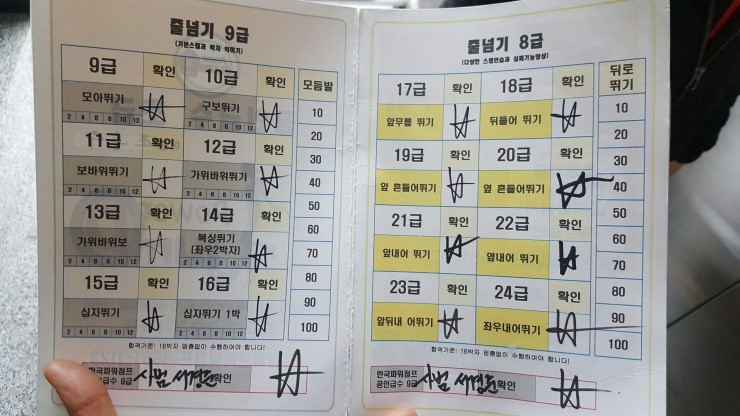 줄넘기 9급
(기본스텝과 박자 익히기)
9급 확인 10급 확인 모듬발
모아뛰기 구보뛰기
2 4 6 8 10 12 2 4 6 8 10 12
11급 확인 12급 확인
보바위뛰기 가위바위뛰기
2 4 6 8 10 12 2 4 6 8 10 12
13급 확인 14급 확인
가위바위보 복싱뛰기
(좌우2박자)
2 4 6 8 10 12 2 4 6 8 10 12
15급 확인 16급 확인
십자뛰기 십자뛰기 1박
2 4 6 8 10 12 2 4 6 8 10 12
10
20
30
40
50
60
70
80
90
100
합격기준: 16박자 멈춤없이 수행하여야 합니다!
한국파워점프
공인급수 9급 사범 서경돈 확인
줄넘기 8급
(다양한 스텝연습과 심폐기능향상)
17급 확인 18급 확인 뒤로
뛰기
앞무릎 뛰기 뒤들어 뛰기
19급 확인 20급 확인
앞 흔들어뛰기 옆 흔들어뛰기
21급 확인 22급 확인
앞내어 뛰기 옆내어 뛰기
23급 확인 24급 확인
앞뒤내 어뛰기 좌우내어뛰기
10
20
30
40
50
60
70
80
90
100
합격기준: 16박자 멈춤없이 수행하여야 합니다!
한국파워점프
공인급수 8급 사범 서경돈 확인